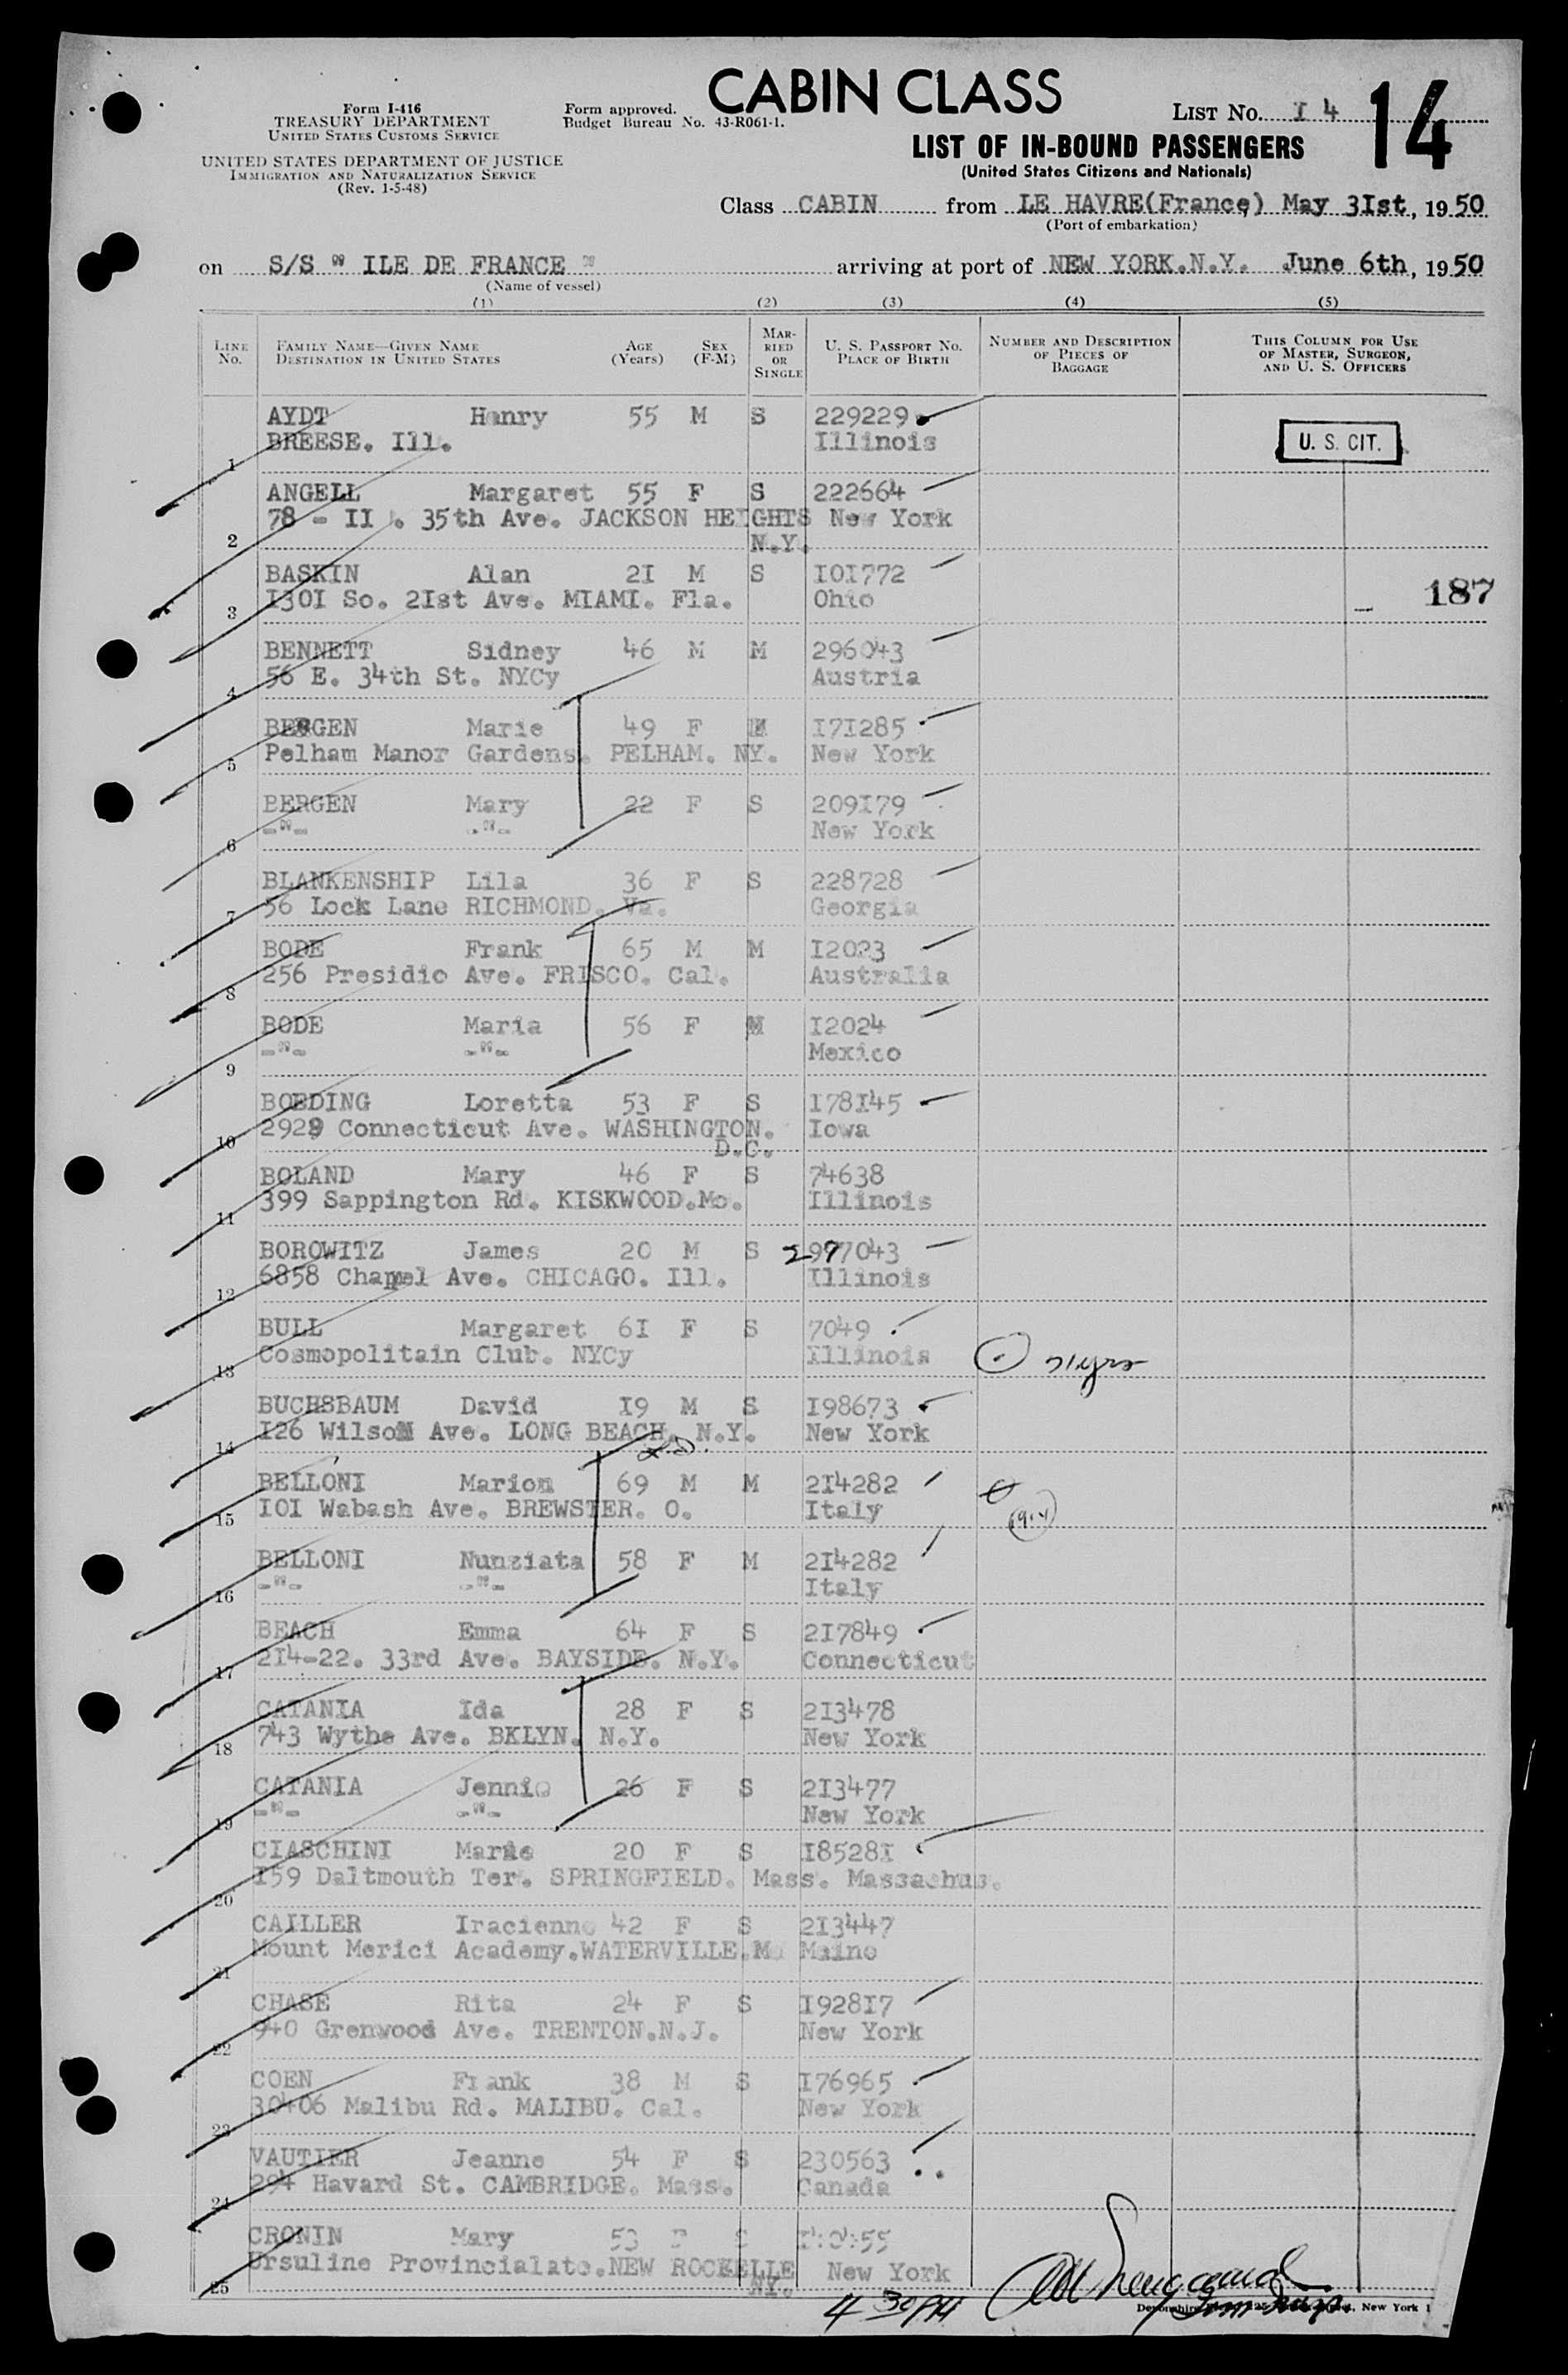 Form I-416
TREASURY DEPARTMENT
UNITED STATES CUSTOMS SERVICE
UNITED STATES DEPARTMENT OF JUSTICE
IMMIGRATION AND NATURALIZATION SERVICE
(Rev. 1-5-48)
Form approved.
Budget Bureau No. 43-R061-1.
CABIN CLASS
LIST NO. I4
14
LIST OF IN-BOUND PASSENGERS
(United States Citizens and Nationals)
Class CABIN from LE HAVRE(France) May 3Ist, 1950
(Port of embarkation)
on S/S " ILE DE FRANCE " arriving at port of NEW YORK.N.Y. June 6th, 1950
(Name of vessel)
(1) (2) (3) (4) (5)
LINE No. FAMILY NAME—GIVEN NAME DESTINATION IN UNITED STATES AGE (Years) SEX (F-M) MARRIED OR SINGLE U. S. PASSPORT NO. PLACE OF BIRTH NUMBER AND DESCRIPTION OF PIECES OF BAGGAGE THIS COLUMN FOR USE OF MASTER, SURGEON, AND U. S. OFFICERS
AYDT Henry 55 M S 229229
1 BREESE. Ill. Illinois
U. S. CIT.
ANGELL Margaret 55 F S 222664
2 78 - II . 35th Ave. JACKSON HEIGHTS N.Y. New York
BASKIN Alan 2I M S I0I772
3 I30I So. 2Ist Ave. MIAMI. Fla. Ohio
187
BENNETT Sidney 46 M M 296043
4 56 E. 34th St. NYCy Austria
BERGEN Marie 49 F M I7I285
5 Pelham Manor Gardens. PELHAM. NY. New York
BERGEN Mary 22 F S 209I79
6 -"- -"- New York
BLANKENSHIP Lila 36 F S 228728
7 56 Lock Lane RICHMOND. Va. Georgia
BODE Frank 65 M M I2023
8 256 Presidio Ave. FRISCO. Cal. Australia
BODE Maria 56 F M I2024
9 -"- -"- Mexico
BOEDING Loretta 53 F S I78I45
10 2929 Connecticut Ave. WASHINGTON. D.C. Iowa
BOLAND Mary 46 F S 74638
11 399 Sappington Rd. KISKWOOD.Mo. Illinois
BOROWITZ James 20 M S 297043
12 6858 Chappel Ave. CHICAGO. Ill. Illinois
BULL Margaret 6I F S 7049
13 Cosmopolitain Club. NYCy Illinois
BUCHSBAUM David I9 M S I98673
14 I26 Wilson Ave. LONG BEACH. N.Y. New York
BELLONI Marion 69 M M 2I4282
15 I0I Wabash Ave. BREWSTER. O. Italy
BELLONI Nunziata 58 F M 2I4282
16 -"- -"- Italy
BEACH Emma 64 F S 2I7849
17 2I4-22. 33rd Ave. BAYSIDE. N.Y. Connecticut
CATANIA Ida 28 F S 2I3478
18 743 Wythe Ave. BKLYN. N.Y. New York
CATANIA Jennie 26 F S 2I3477
19 -"- -"- New York
CIASCHINI Marie 20 F S I8528I
20 I59 Daltmouth Ter. SPRINGFIELD. Mass. Massachus.
CAILLER Iracienne 42 F S 2I3447
21 Mount Merici Academy.WATERVILLE.Me Maine
CHASE Rita 24 F S I928I7
22 940 Grenwood Ave. TRENTON.N.J. New York
COEN Frank 38 M S I76965
23 30406 Malibu Rd. MALIBU. Cal. New York
VAUTIER Jeanne 54 F S 230563
24 294 Havard St. CAMBRIDGE. Mass. Canada
CRONIN Mary 53 F S
25 Ursuline Provincialate.NEW ROCHELLE NY. New York
4 30 PM
New York 1